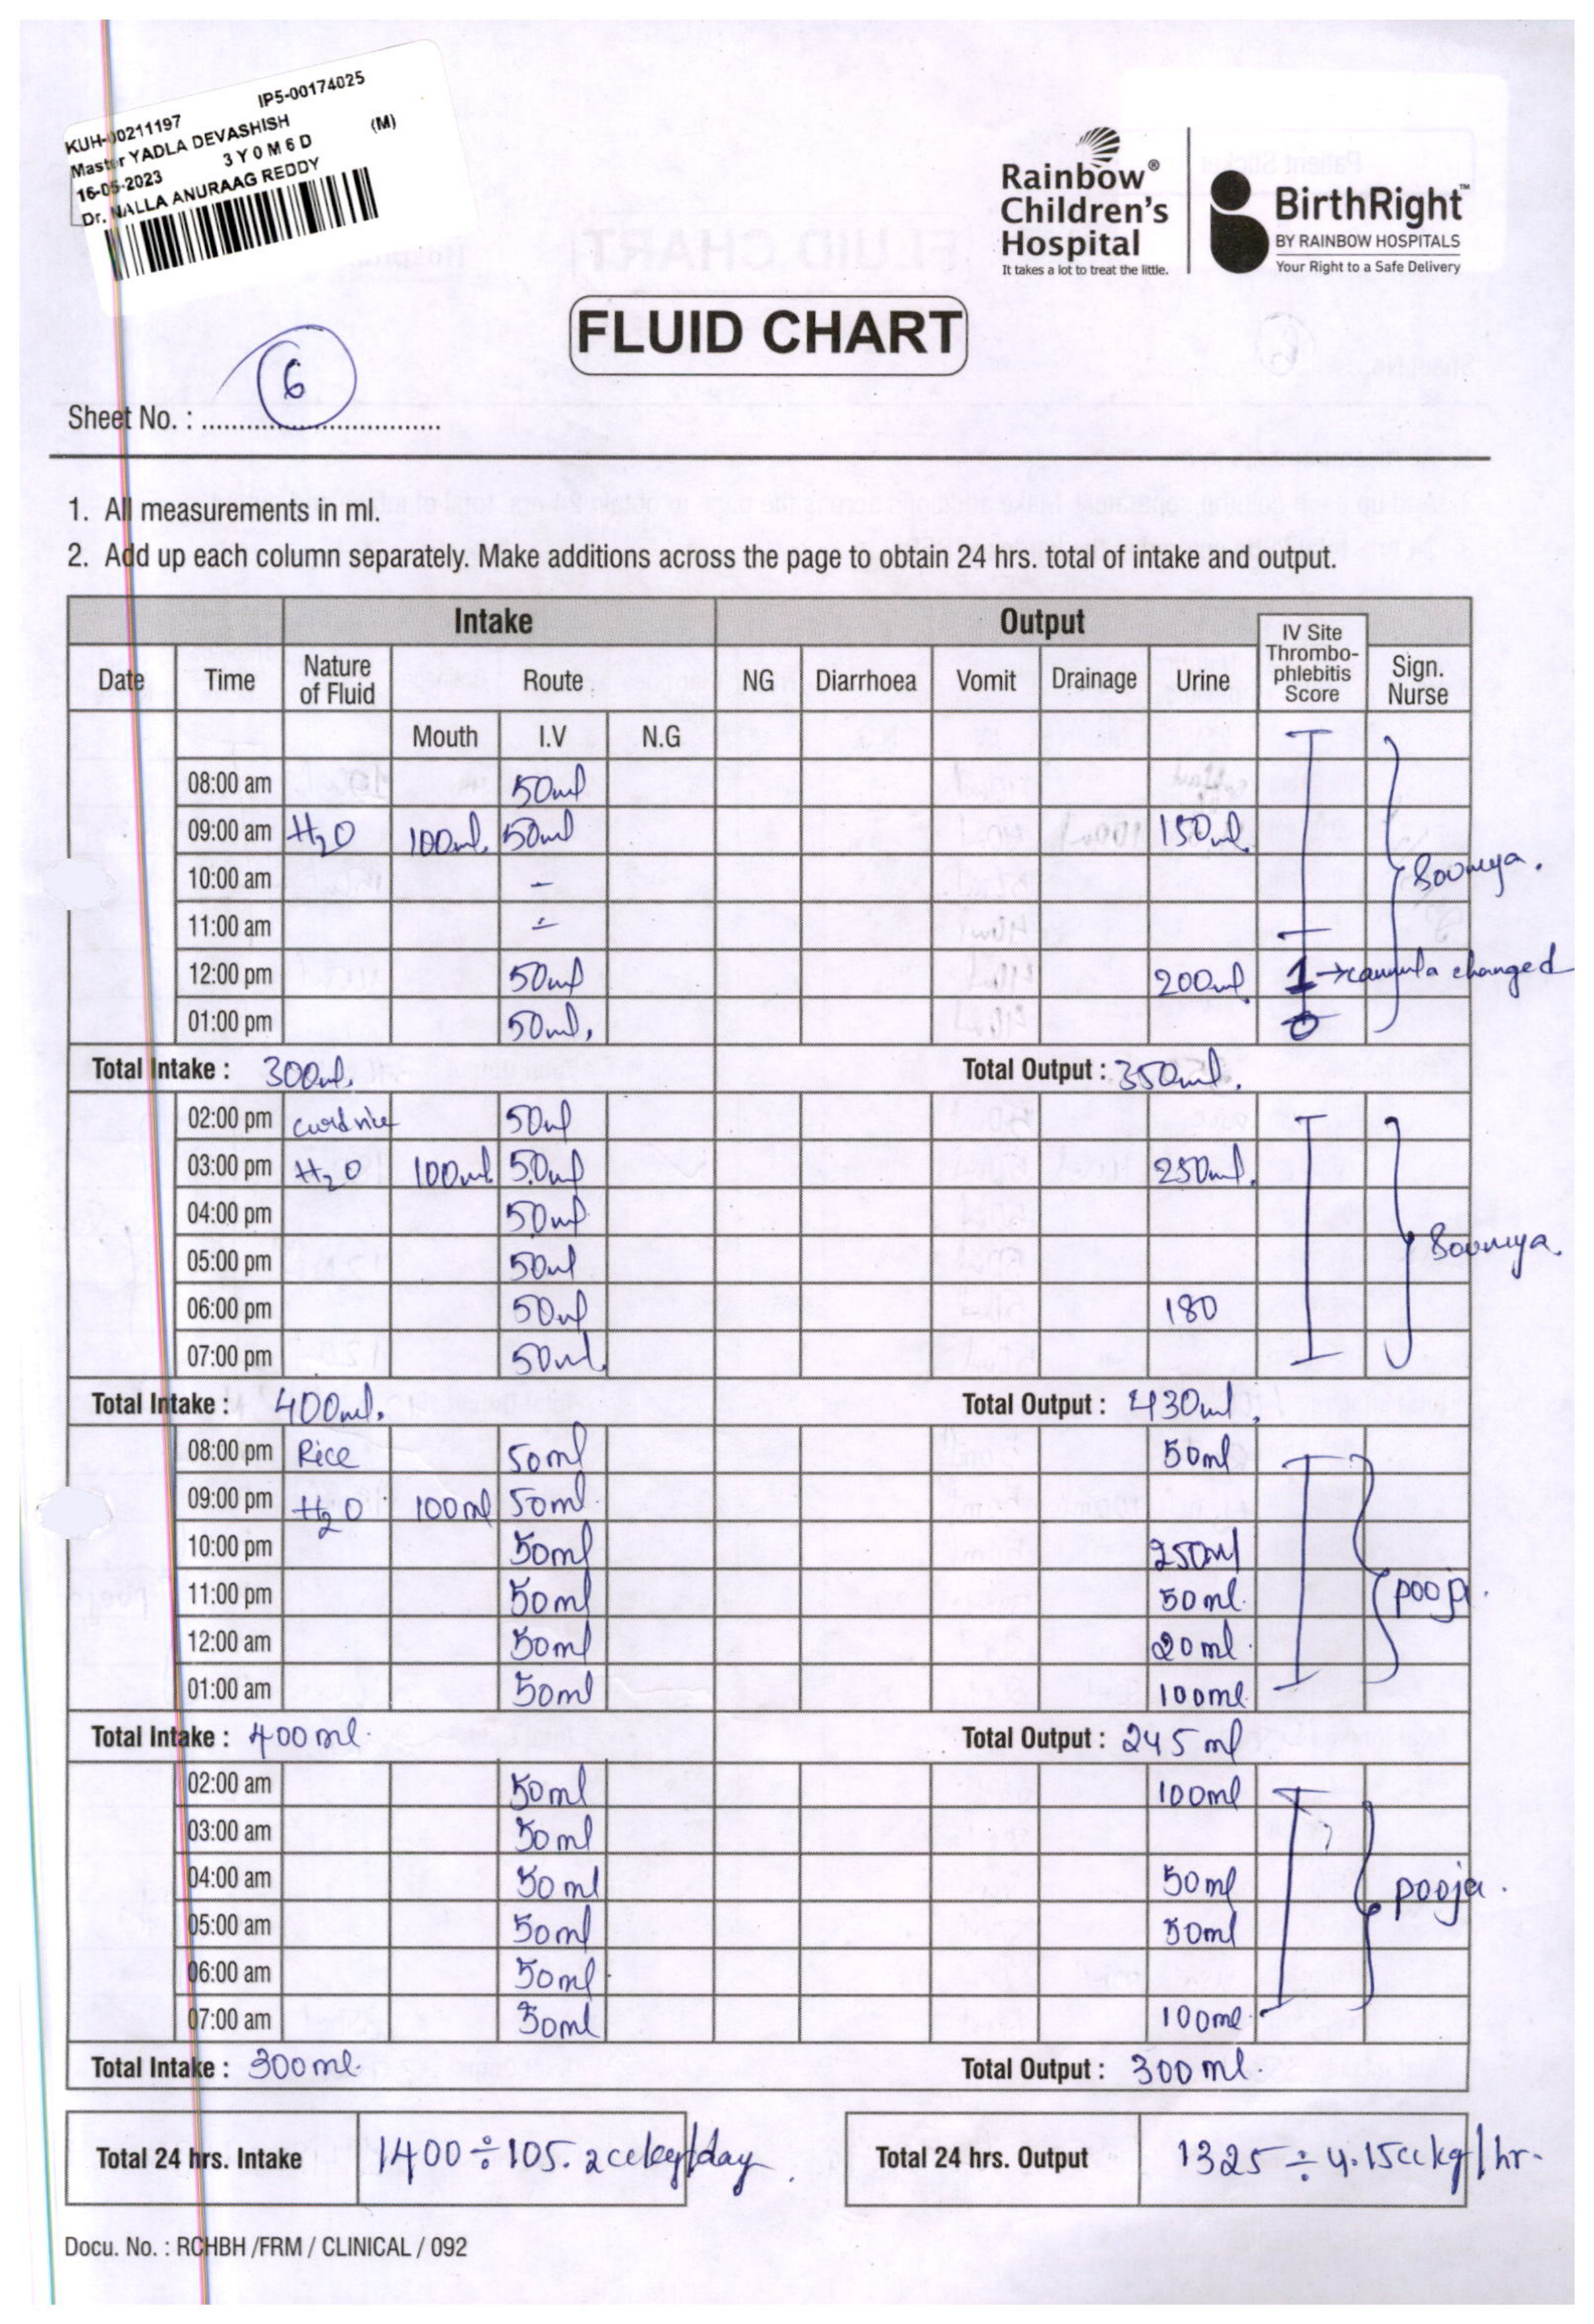 IP5-00174025
KUH-00211197
Master YADLA DEVASHISH (M)
16-05-2023 3 Y 0 M 6 D
Dr. NALLA ANURAAG REDDY
Rainbow®
Children's
Hospital
It takes a lot to treat the little.
BirthRight™
BY RAINBOW HOSPITALS
Your Right to a Safe Delivery
FLUID CHART
Sheet No. : 6
1. All measurements in ml.
2. Add up each column separately. Make additions across the page to obtain 24 hrs. total of intake and output.
Intake Output
Date Time Nature of Fluid Route NG Diarrhoea Vomit Drainage Urine IV Site Thrombo-phlebitis Score Sign. Nurse
Mouth I.V N.G
08:00 am 50ml
09:00 am H2O 100ml. 50ml 150ml.
10:00 am -
11:00 am -
Soumya.
12:00 pm 50ml 200ml. 1 → cannula changed
01:00 pm 50ml. 0
Total Intake : 300ml. Total Output : 350ml.
02:00 pm curd rice 50ml
03:00 pm H2O 100ml 50ml 250ml.
04:00 pm 50ml
05:00 pm 50ml Soumya.
06:00 pm 50ml 180
07:00 pm 50ml.
Total Intake : 400ml. Total Output : 430ml.
08:00 pm Rice 50ml 50ml
09:00 pm H2O 100ml 50ml.
10:00 pm 50ml 250ml
11:00 pm 50ml 50ml. pooja.
12:00 am 50ml 20ml.
01:00 am 50ml 100ml.
Total Intake : 400ml. Total Output : 245ml
02:00 am 50ml 100ml
03:00 am 50ml
04:00 am 50ml 50ml pooja.
05:00 am 50ml 50ml
06:00 am 50ml.
07:00 am 50ml 100ml.
Total Intake : 300ml. Total Output : 300ml.
Total 24 hrs. Intake 1400 ÷ 105.2cc/kg/day. Total 24 hrs. Output 1325 ÷ 4.15cc kg/hr.
Docu. No. : RCHBH /FRM / CLINICAL / 092